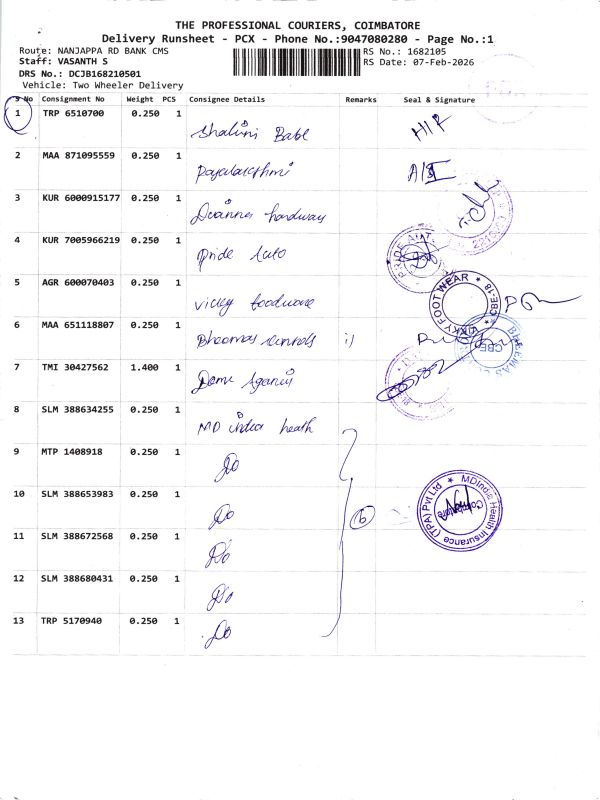 THE PROFESSIONAL COURIERS, COIMBATORE
Delivery Runsheet - PCX - Phone No.:9047080280 - Page No.:1
Route: NANJAPPA RD BANK CMS RS No.: 1682105
Staff: VASANTH S RS Date: 07-Feb-2026
DRS No.: DCJB168210501
Vehicle: Two Wheeler Delivery
S No Consignment No Weight PCS Consignee Details Remarks Seal & Signature
1 TRP 6510700 0.250 1 Shalini
2 MAA 871095559 0.250 1
3 KUR 6000915177 0.250 1 hardway
4 KUR 7005966219 0.250 1 Pride Auto
PRIDE AUT
5 AGR 600070403 0.250 1 Vicky footware
VICKY FOOT WEAR * CBE-18 *
6 MAA 651118807 0.250 1 controls
CBE
7 TMI 30427562 1.400 1
8 SLM 388634255 0.250 1 MD india heath
9 MTP 1408918 0.250 1 Do
10 SLM 388653983 0.250 1 Do 6
MDIndia Health Insurance (TPA) Pvt Ltd *
Coimbatore
11 SLM 388672568 0.250 1 Do
12 SLM 388680431 0.250 1 Do
13 TRP 5170940 0.250 1 Do